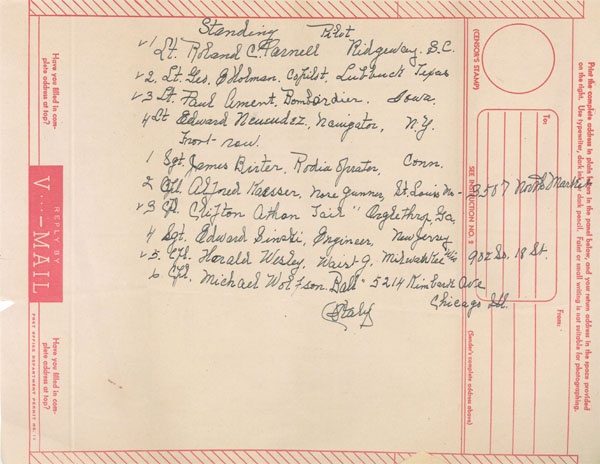 Standing Pilot
√1 Lt. Roland C. Parnell Ridgeway, S.C.
√2. Lt. Geo. Holman, Copilot, Lubbuck Texas
√3 Lt. Paul Ament, Bombardier, Iowa
4 Lt Edward Navigator, N.Y.
Front row.
1 Sgt. James Rodio Oprator, Conn.
2 Cpl. Nose gunner, St. Louis Mo - 9507 North Market
√3 Cpl. Clifton Athan Tair " Oglethrop, Ga,
4 Sgt. Edward Sinski, Engineer, New Jersey
√5. Cpl. Harald Wesley, Waist g, Milwaukee Wis 902 So. 18 St.
6 Cpl. Michael Wolfson Ball - 5214 Kimbark Ave
Chicago Ill.
Italy
Have you filled in complete address at top?
REPLY BY
V···—MAIL
Have you filled in complete address at top?
POST OFFICE DEPARTMENT PERMIT NO. 11
(CENSOR'S STAMP)
SEE INSTRUCTION NO. 2
(Sender's complete address above)
To:
From:
Print the complete address in plain letters in the panel below, and your return address in the space provided
on the right. Use typewriter, dark ink, or dark pencil. Faint or small writing is not suitable for photographing.